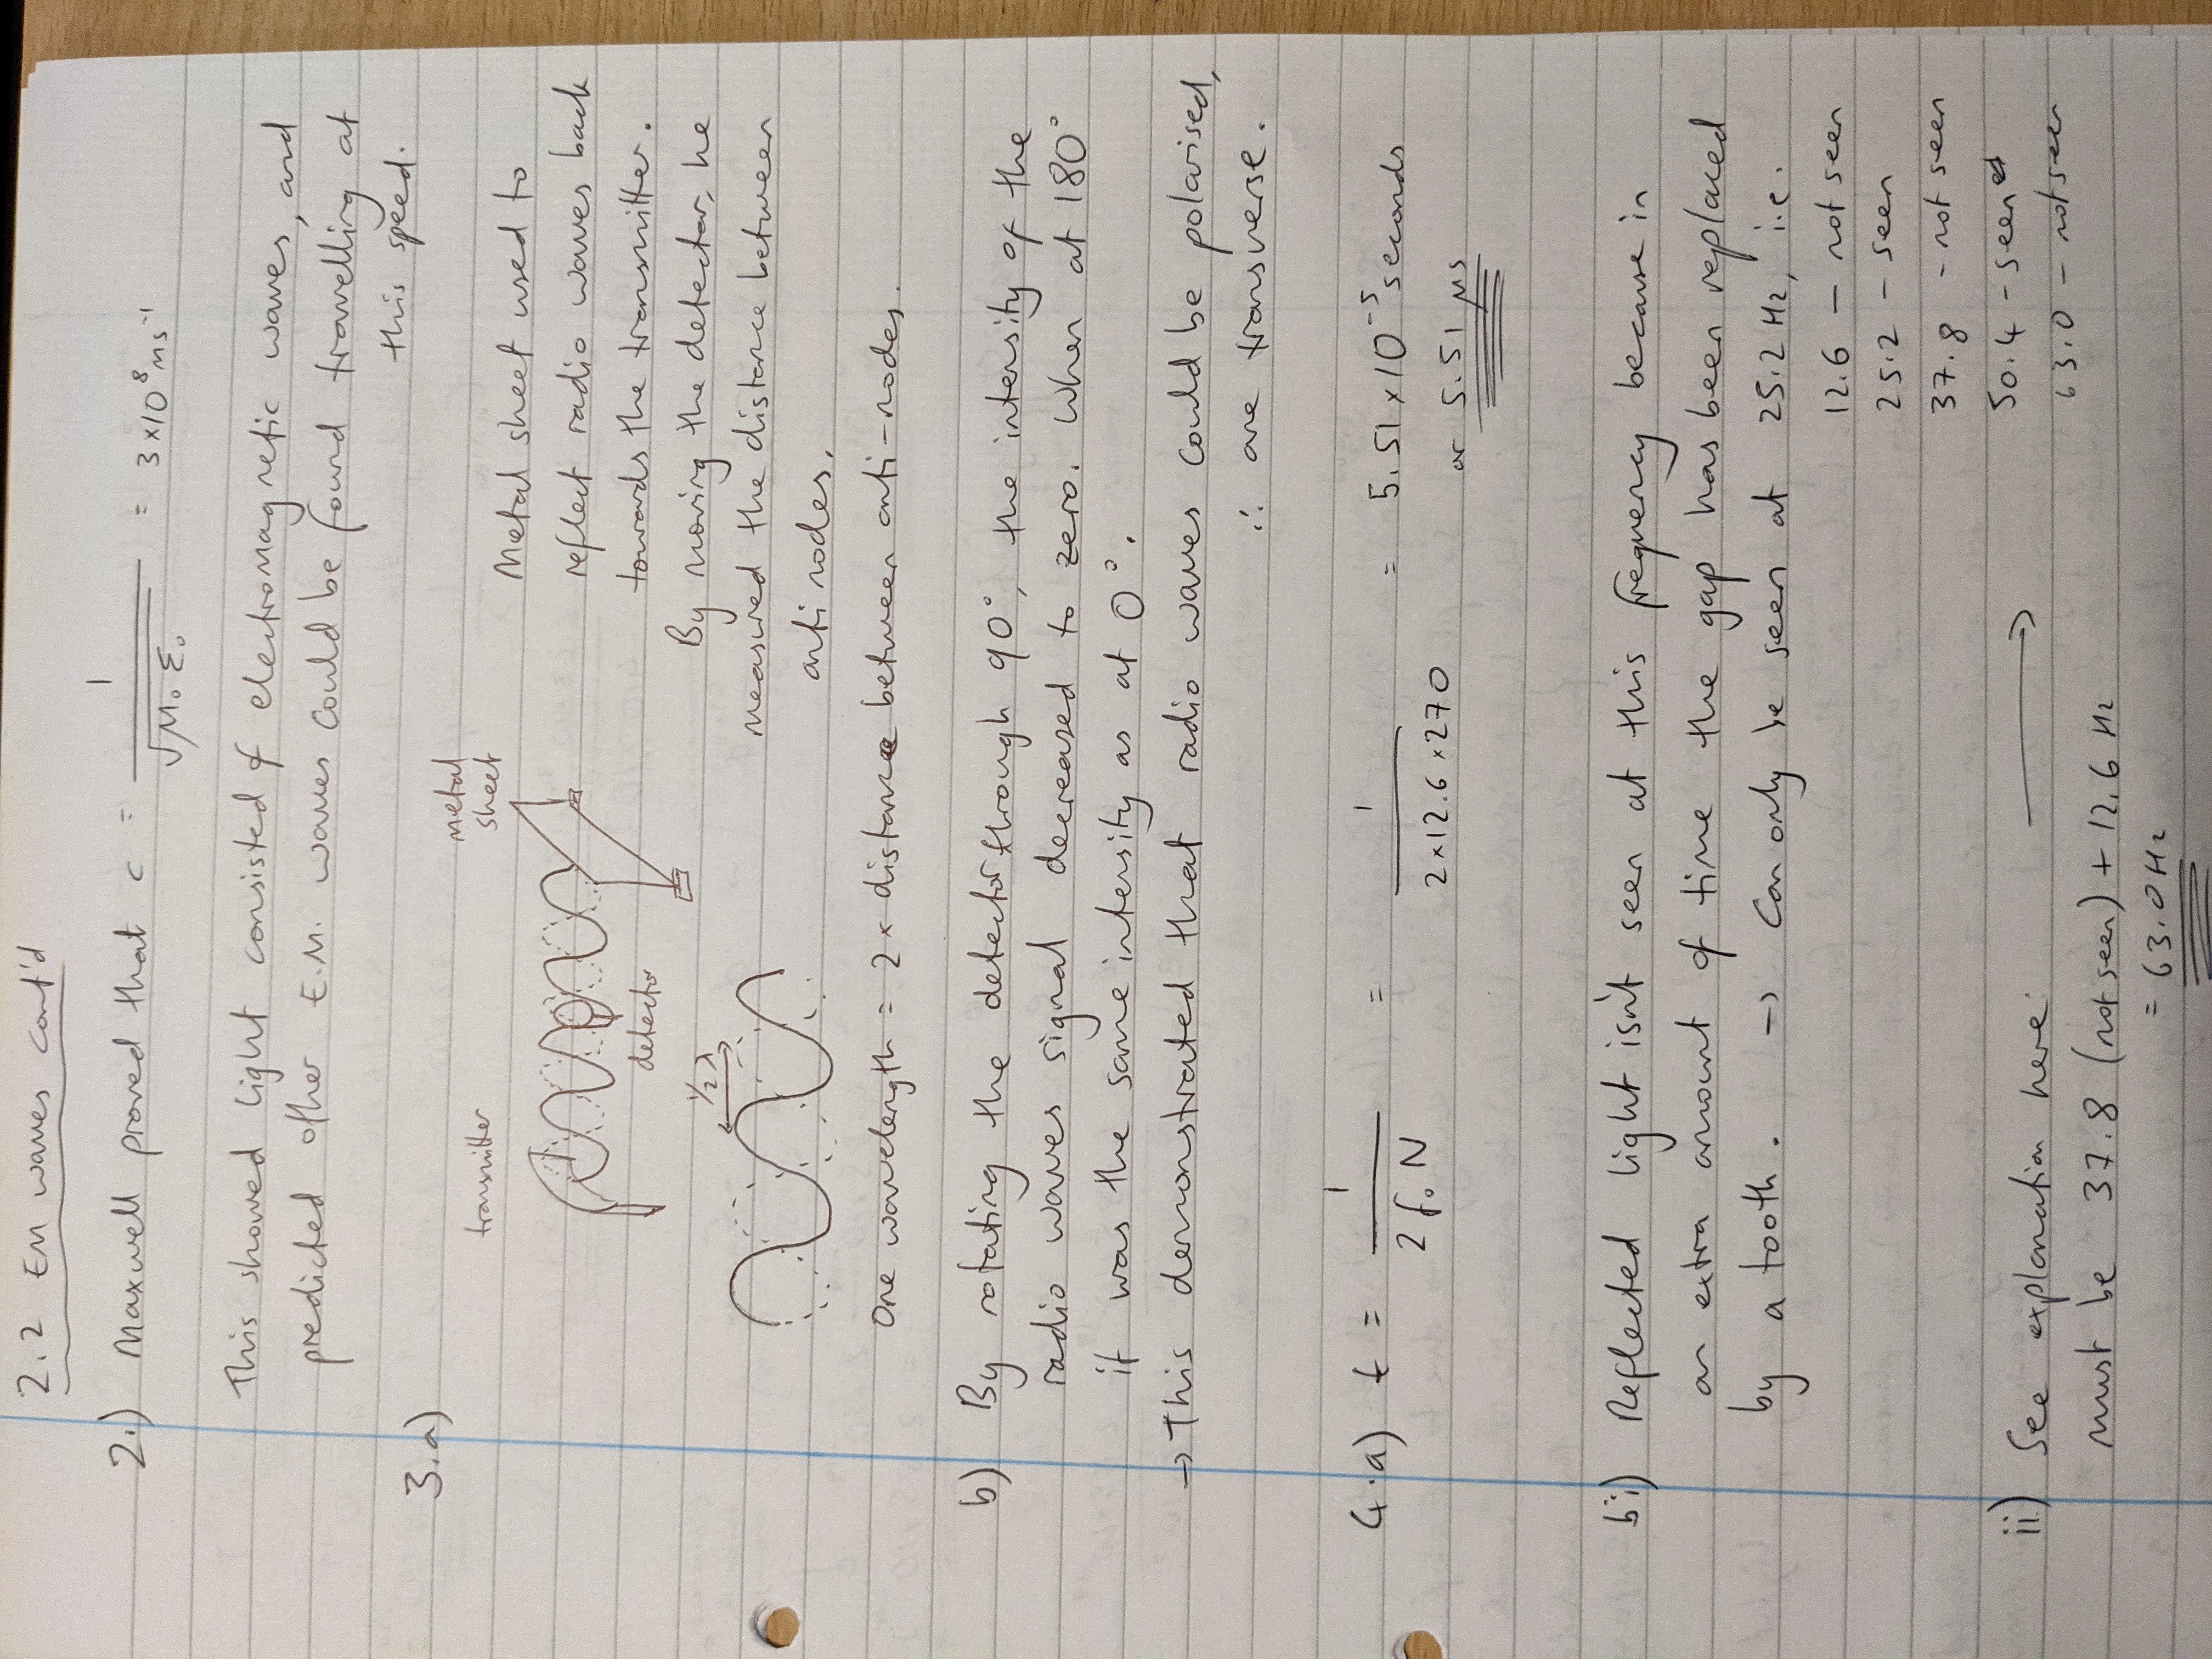 2.2 EM waves cont'd
2.) Maxwell proved that c = 1/√μ₀ε₀ = 3×10⁸ms⁻¹
This showed light consisted of electromagnetic waves, and
predicted other E.M. waves could be found travelling at
this speed.
3.a)
transmitter
metal
sheet
detector
Metal sheet used to
reflect radio waves back
towards the transmitter.
By moving the detector, he
measured the distance between
antinodes.
1/2 λ
One wavelength = 2 × distance between anti-nodes.
b) By rotating the detector through 90°, the intensity of the
radio waves signal decreased to zero. When at 180°
it was the same intensity as at 0°.
→ This demonstrated that radio waves could be polarised,
∴ are transverse.
4.a) t = 1/2f₀N = 1/2×12.6×270 = 5.51×10⁻⁵ seconds
or 5.51 μs
bi) Reflected light isn't seen at this frequency because in
an extra amount of time the gap has been replaced
by a tooth. → Can only be seen at 25.2 Hz, i.e.
12.6 – not seen
25.2 – seen
37.8 – not seen
50.4 – seen
63.0 – not seen
ii) See explanation here: →
must be 37.8 (not seen) + 12.6 Hz
= 63.0 Hz